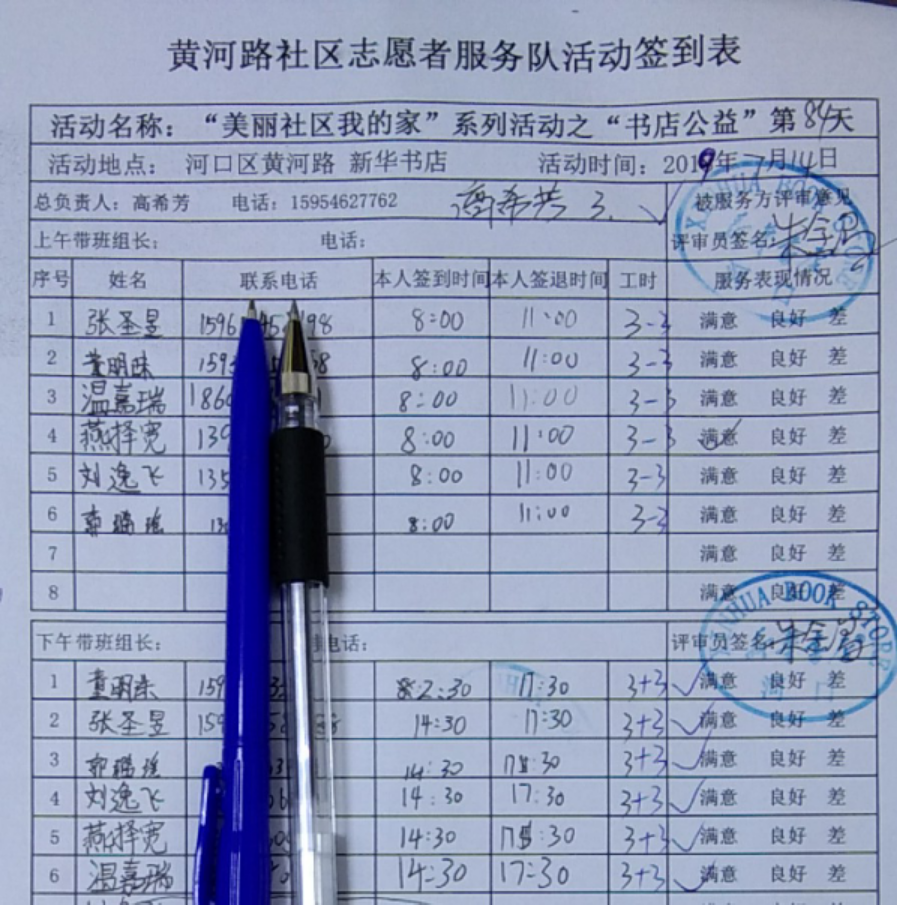 黄河路社区志愿者服务队活动签到表
活动名称：“美丽社区我的家”系列活动之“书店公益”第84天
活动地点： 河口区黄河路 新华书店 活动时间：2019年7月14日
总负责人：高希芳 电话：15954627762 高希芳 3. 被服务方评审意见
上午带班组长： 电话： 评审员签名：
序号 姓名 联系电话 本人签到时间 本人签退时间 工时 服务表现情况
1 张圣昱 8:00 11:00 3-3 满意 良好 差
2 董明 8:00 11:00 3-3 满意 良好 差
3 温嘉瑞 8:00 11:00 3-3 满意 良好 差
4 燕择宽 8:00 11:00 3-3 满意 良好 差
5 刘逸飞 8:00 11:00 3-3 满意 良好 差
6 郭瑞瑶 8:00 11:00 3-3 满意 良好 差
7 满意 良好 差
8 满意 良好 差
XINHUA BOOK STORE
下午带班组长： 电话： 评审员签名：
1 董明 2:30 17:30 3+3 满意 良好 差
2 张圣昱 14:30 17:30 3+3 满意 良好 差
3 郭瑞瑶 14:30 17:30 3+3 满意 良好 差
4 刘逸飞 14:30 17:30 3+3 满意 良好 差
5 燕择宽 14:30 17:30 3+3 满意 良好 差
6 温嘉瑞 14:30 17:30 3+3 满意 良好 差